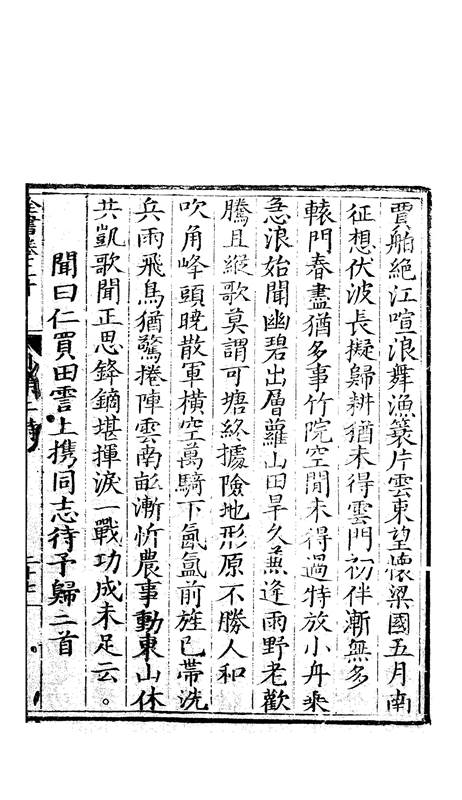 賈舶絶江喧浪舞漁簑片雲東望懷梁國五月南
征想伏波長擬歸耕猶未得雲門初伴漸無多
轅門春盡猶多事竹院空閒未得過特放小舟乘
急浪始聞幽碧出層蘿山田旱久兼逢雨野老歡
騰且縱歌莫謂可塘終據險地形原不勝人和
吹角峰頭曉散軍橫空萬騎下氤氳前旌已帶洗
兵雨飛鳥猶驚捲陣雲南畝漸忻農事動東山休
共凱歌聞正思鋒鏑堪揮淚一戰功成未足云。
聞曰仁買田霅上携同志待予歸二首
全書卷二十
二十七